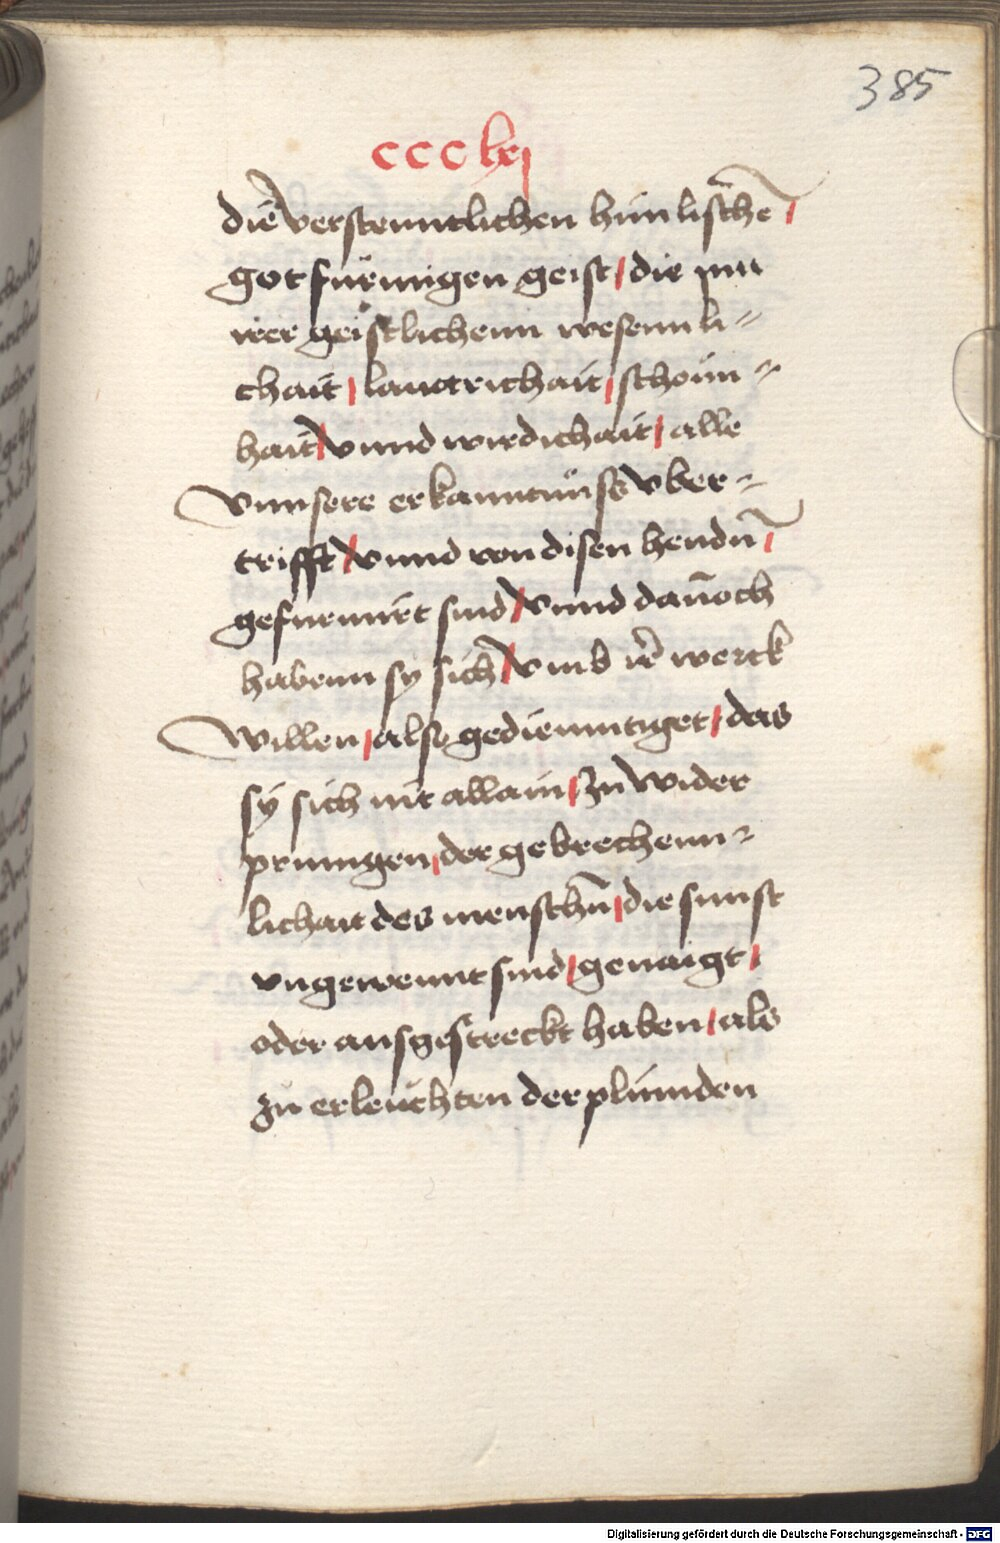 385
ccclxj
die verstenntlichen himlische̅ /
gotfurmigen geist / die mit
irer geistlichenn wesennli=
chait / lauttrichait / schoun=
hait / vnnd wirdichait / alle
vnnsere erkanntnuss vber=
trifft / vnnd von disen hendn̅ /
gefurmirt sind / vnnd dan̅och
habenn sy sich / vmb ir werck
willen / also gediemmtiget / das
sy sich nit allain / zu wider
pringen / der gebrechenn=
lichait des menschn̅ / die sunst
vngewennt sind / genaigt /
oder ausgestreckt haben / als
zu erleuchten der plinnden
Digitalisierung gefördert durch die Deutsche Forschungsgemeinschaft - DFG